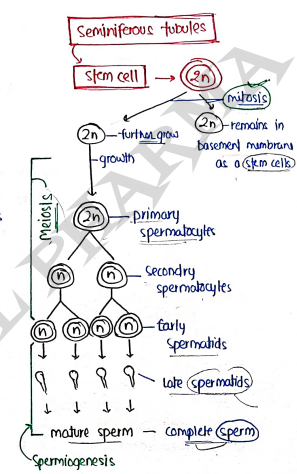 seminiferous tubules
stem cell
2n
mitosis
2n - further grow
2n - remains in
basement membrane
as a stem cells
growth
meiosis
2n primary
spermatocytes
n n secondry
spermatocytes
n n n n Early
spermatids
late spermatids
mature sperm - complete sperm
spermiogenesis
PHARMA